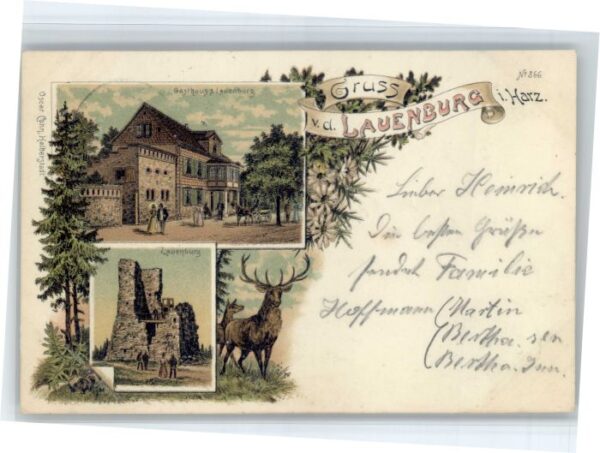 Nr 866
Gruss
v. d. LAUENBURG i. Harz.
Gasthaus z. Lauenburg
Lauenburg
Halberstadt.
Lieber Heinrich.
Die besten Grüße
sendet Familie
Hoffmann (Martin
(Bertha. sen
(Bertha. Jun.